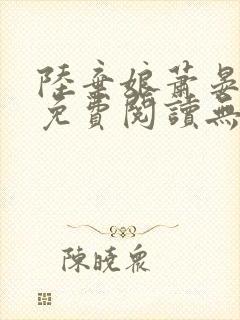 陸棄娘蕭晏
免費閱讀無
陳曉眾